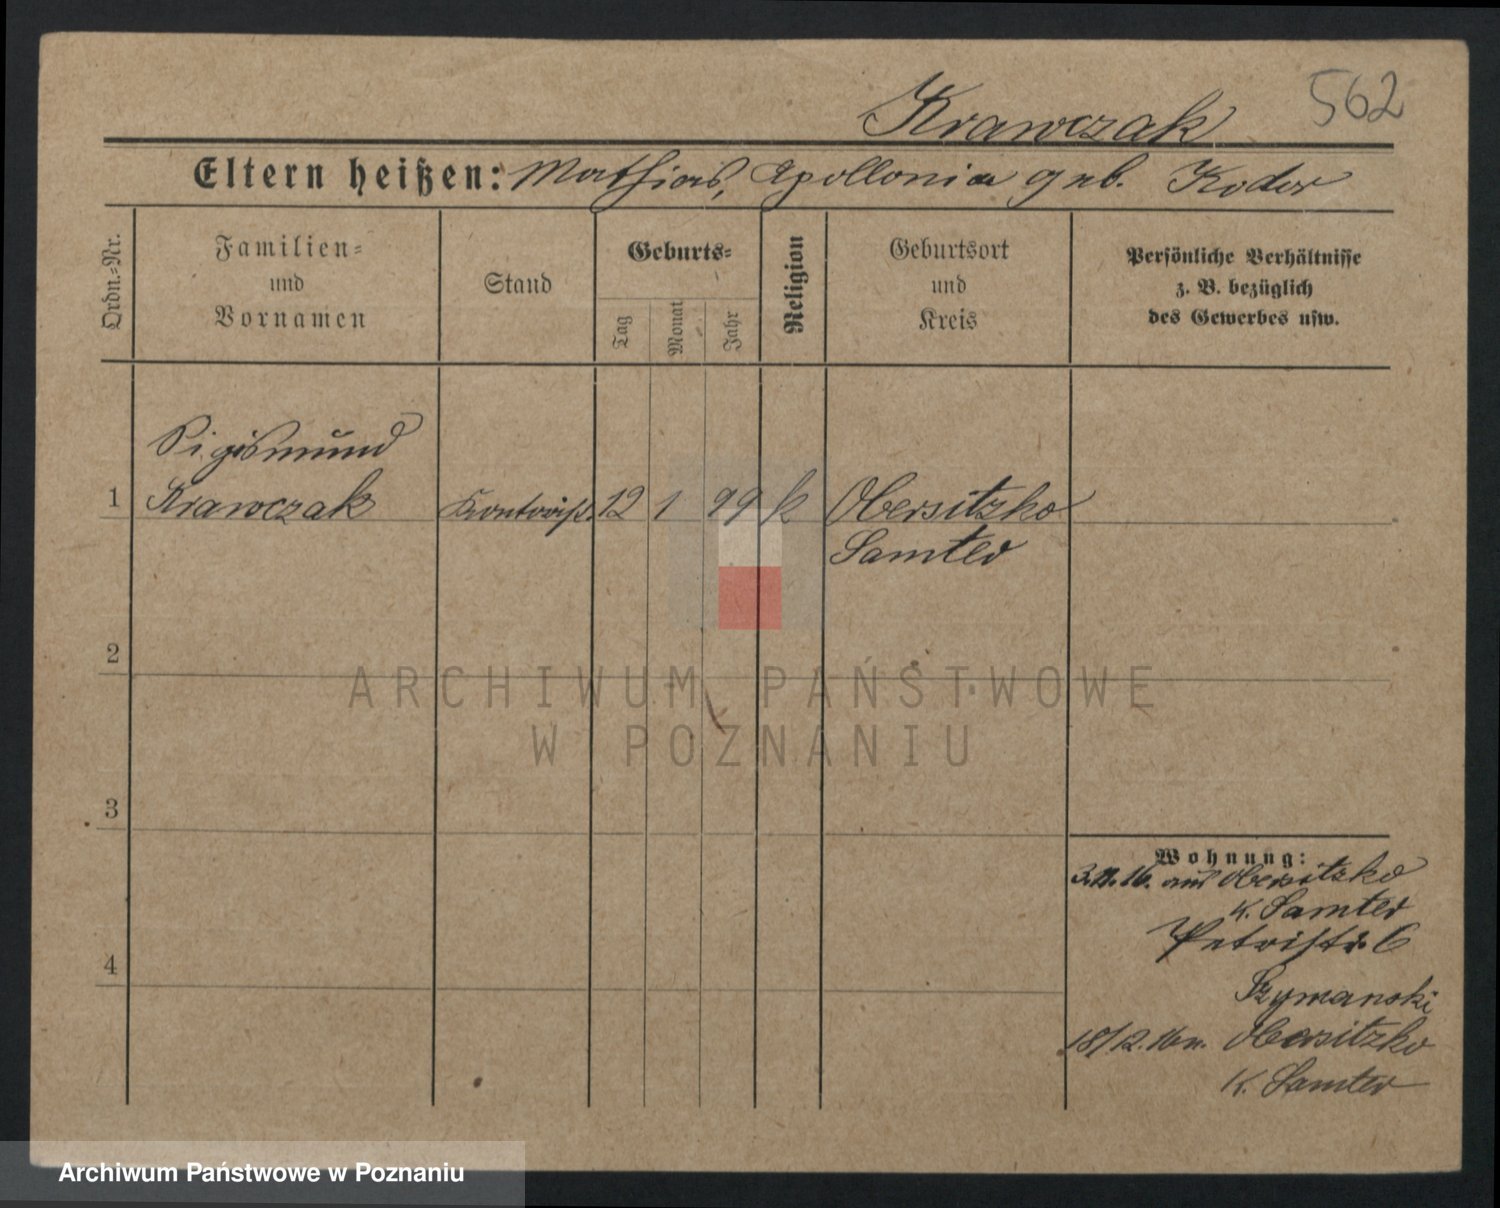 562
Krawczak
Eltern heißen: Mathias, Apollonia geb. Koder
Ordn.=Nr.
Familien=
und
Vornamen
Stand
Geburts=
Tag
Monat
Jahr
Religion
Geburtsort
und
Kreis
Persönliche Verhältnisse
z. B. bezüglich
des Gewerbes usw.
Sigismund
1 Krawczak Kontorist. 12 1 99 k Obersitzko
Samter
2
3
4
Wohnung:
3.11.16. aus Obersitzko
K. Samter
Petristr. 6
Szymanski
18/12.16 n. Obersitzko
K. Samter
ARCHIWUM PAŃSTWOWE
W POZNANIU
Archiwum Państwowe w Poznaniu